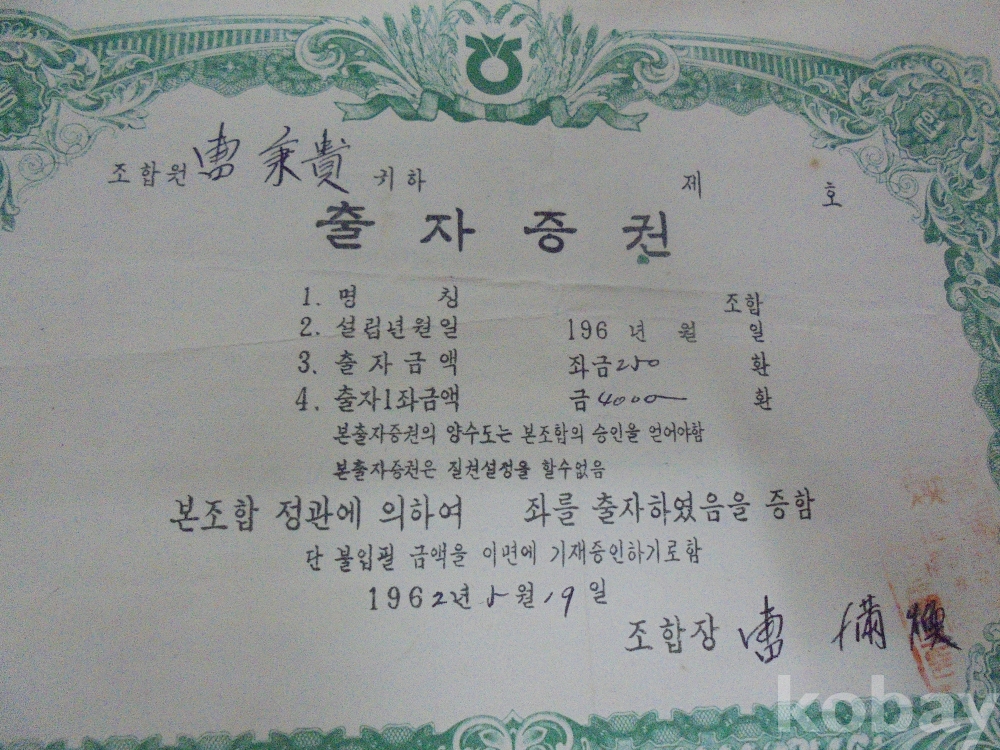 조합원 曺秉貴 귀하 제 호
출자증권
1. 명 칭 조합
2. 설립년월일 196 년 월 일
3. 출자금액 좌금 250 환
4. 출자1좌금액 금 4000 환
본출자증권의 양수도는 본조합의 승인을 얻어야함
본출자증권은 질권설정을 할수없음
본조합 정관에 의하여 좌를 출자하였음을 증함
단 불입필 금액을 이면에 기재증인하기로함
1962년 5월 19일
조합장 曺 煥
kobay